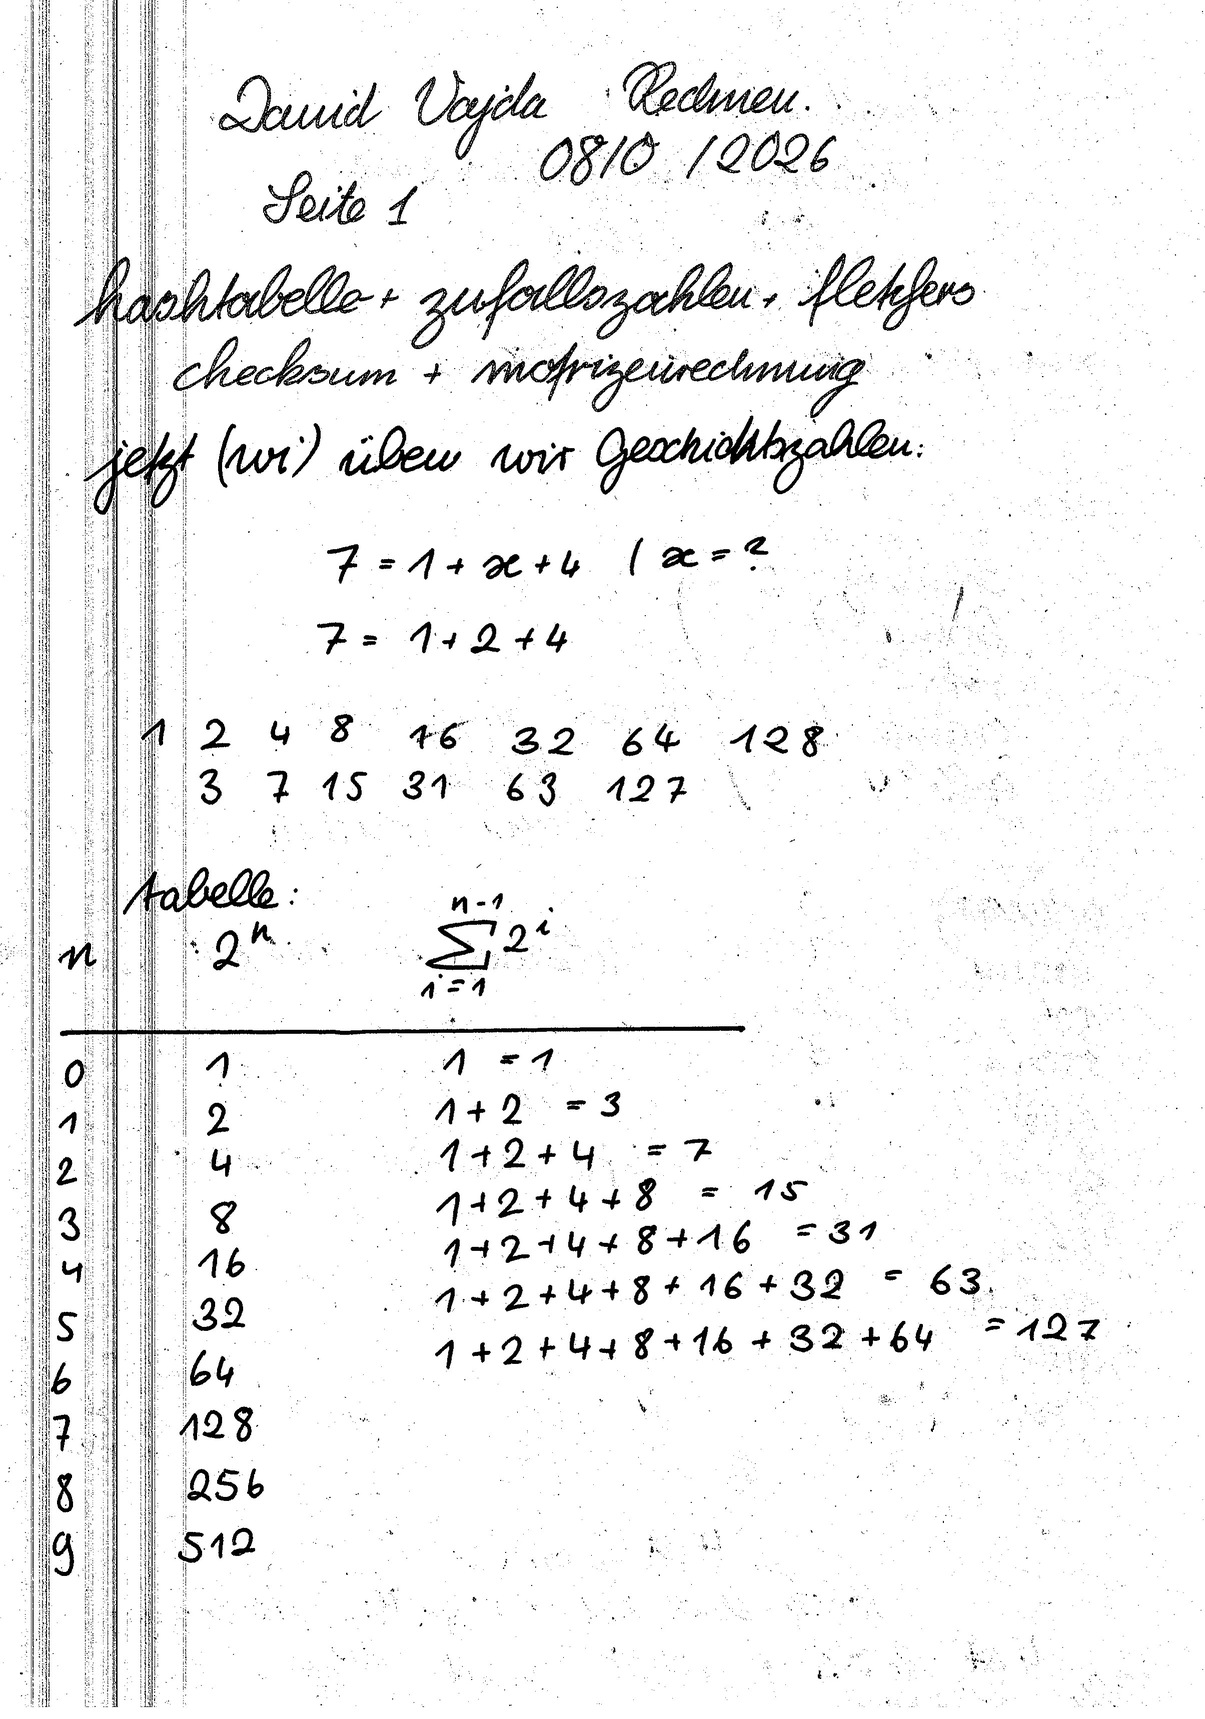 David Vajda Rechnen.
08/0 /2026
Seite 1
hashtabelle + zufallszahlen, fletchers
checksum + matrizenrechnung
jetzt (wi) üben wir Geschichtszahlen:
7 = 1 + x + 4 | x = ?
7 = 1 + 2 + 4
1 2 4 8 16 32 64 128
3 7 15 31 63 127
tabelle:
n 2^n \sum_{i=1}^{n-1} 2^i
0 1 1 = 1
1 2 1+2 = 3
2 4 1+2+4 = 7
3 8 1+2+4+8 = 15
4 16 1+2+4+8+16 = 31
5 32 1+2+4+8+16+32 = 63
6 64 1+2+4+8+16+32+64 = 127
7 128
8 256
9 512